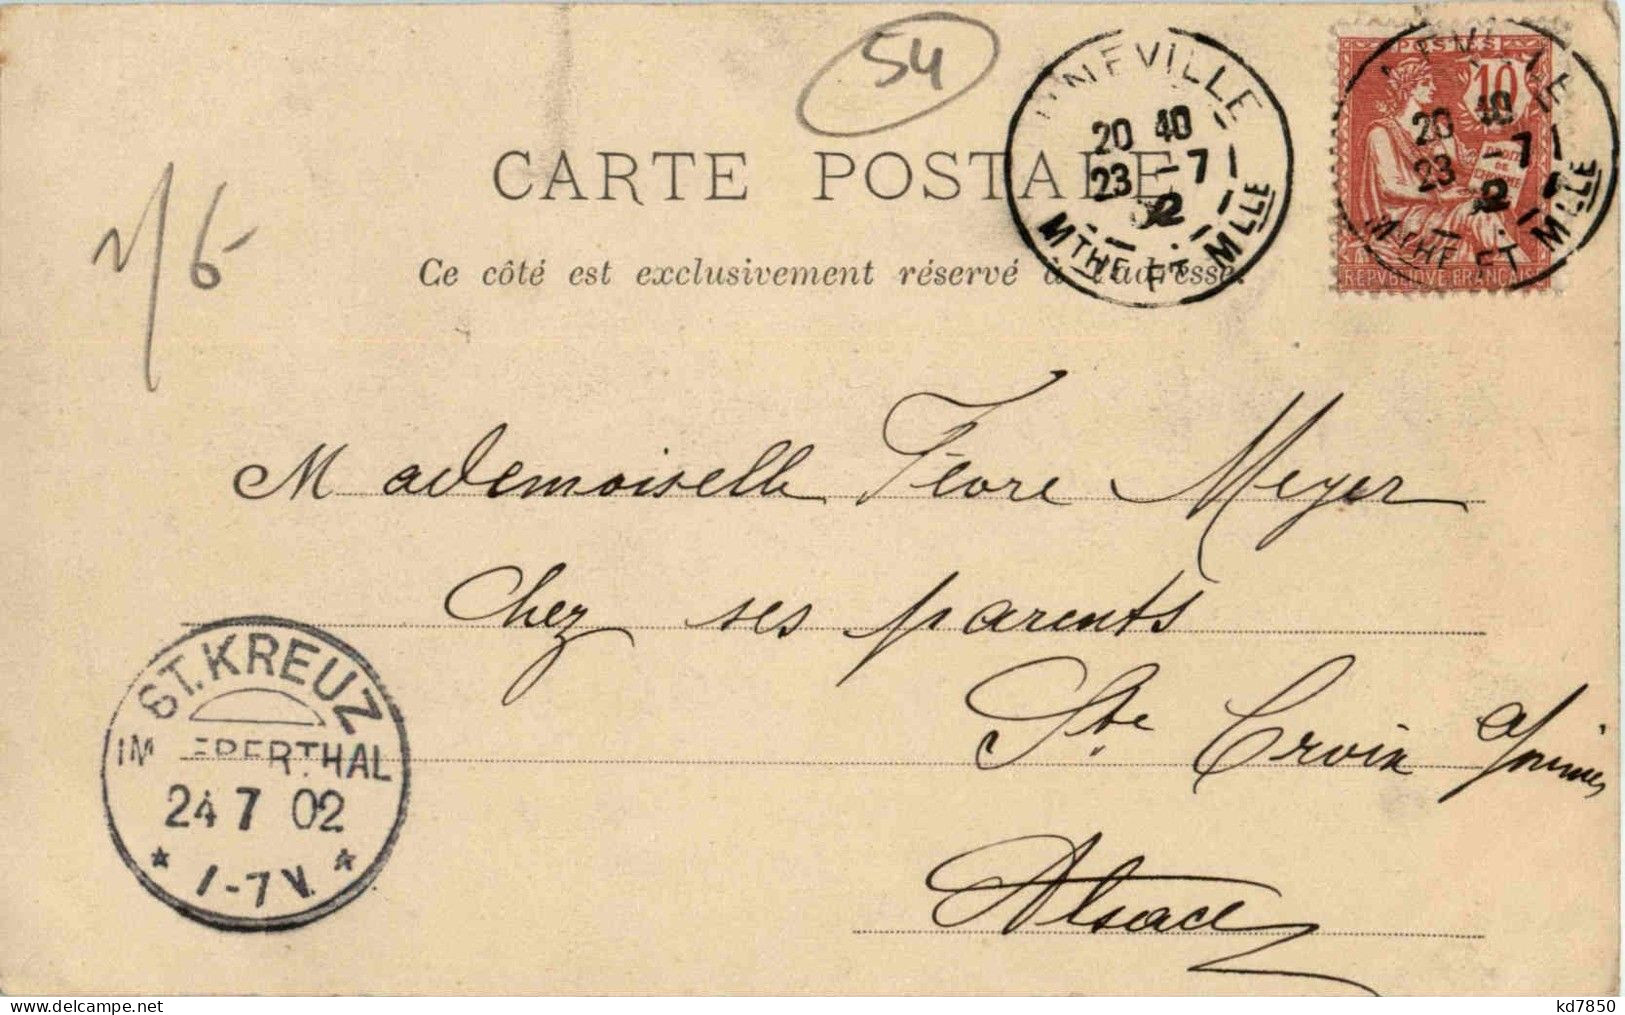 54
CARTE POSTALE
Ce côté est exclusivement réservé à l'adresse.
NEVILLE
20 40
23 -7
2
MTHE ET MLLE
POSTES
10
20 40
23 -7
2
MTHE ET MLLE
REPVBLIQVE FRANÇAISE
6
Mademoiselle Fèvre Meyer
Chez ses parents
Ste Croix
Alsace
ST. KREUZ
IM EBERTHAL
24 7 02
* 1-7 V. *
kd7850